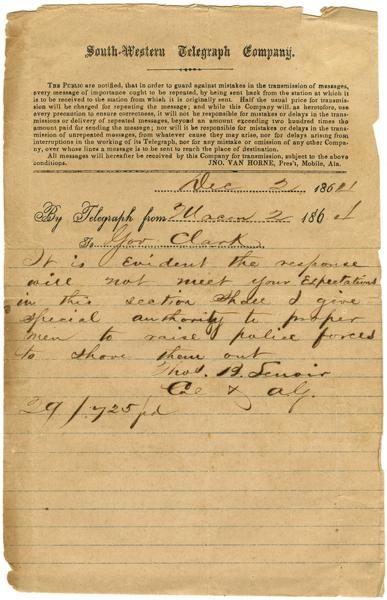 South-Western Telegraph Company.
THE PUBLIC are notified, that in order to guard against mistakes in the transmission of messages,
every message of importance ought to be repeated, by being sent back from the station at which it
is to be received to the station from which it is originally sent. Half the usual price for transmis-
sion will be charged for repeating the message; and while this Company will, as heretofore, use
every precaution to ensure correctness, it will not be responsible for mistakes or delays in the trans-
missions or delivery of repeated messages, beyond an amount exceeding two hundred times the
amount paid for sending the message; nor will it be responsible for mistakes or delays in the trans-
mission of unrepeated messages, from whatever cause they may arise, nor for delays arising from
interruptions in the working of its Telegraph, nor for any mistake or omission of any other Compa-
ny, over whose lines a message is to be sent to reach the place of destination.
All messages will hereafter be received by this Company for transmission, subject to the above
conditions. JNO. VAN HORNE, Pres't, Mobile, Ala.
Dec 2 1864
By Telegraph from Macon 2 1864
To Gov Clark
It is Evident the response
will not meet your Expectations
in this section Shall I give
special authority to proper
men to raise police forces
to shove them out
Thos. B. Lenoir
Col & A.G.
29/.725 pd